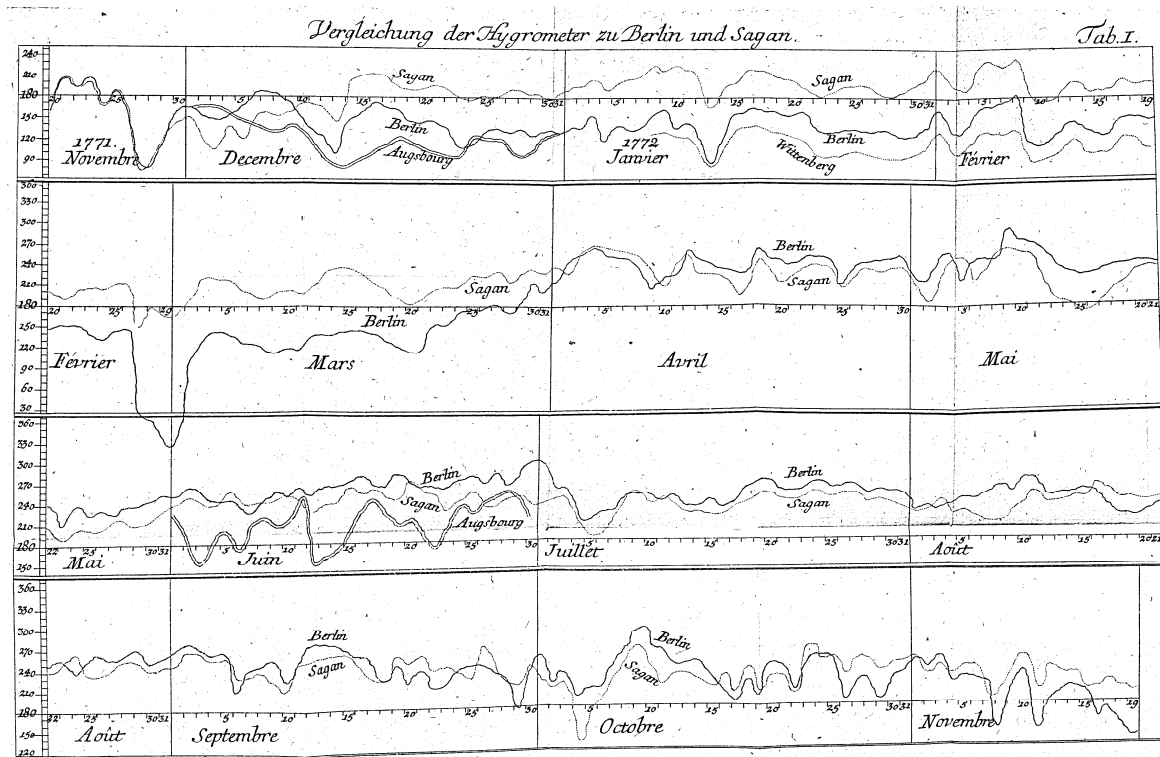 Vergleichung der Hygrometer zu Berlin und Sagan.
Tab.I.
240
210
180
150
120
90
20 25 30 5 10 15 20 25 3031 5 10 15 20 25 3031 5 10 15 19
Sagan
Berlin
Augsbourg
Sagan
Berlin
Wittenberg
1771.
Novembre
Decembre
1772
Janvier
Février
360
330
300
270
240
210
180
150
120
90
60
30
20 25 29 5 10 15 20 25 3031 5 10 15 20 25 30 5 10 15 2021
Sagan
Berlin
Berlin
Sagan
Février
Mars
Avril
Mai
360
330
300
270
240
210
180
150
22 25 3031 5 10 15 20 25 30 5 10 15 20 25 3031 5 10 15 2021
Berlin
Sagan
Augsbourg
Berlin
Sagan
Mai
Juin
Juillet
Août
360
330
300
270
240
210
180
150
120
22 25 3031 5 10 15 20 25 30 5 10 15 20 25 3031 5 10 15 19
Berlin
Sagan
Berlin
Sagan
Août
Septembre
Octobre
Novembre